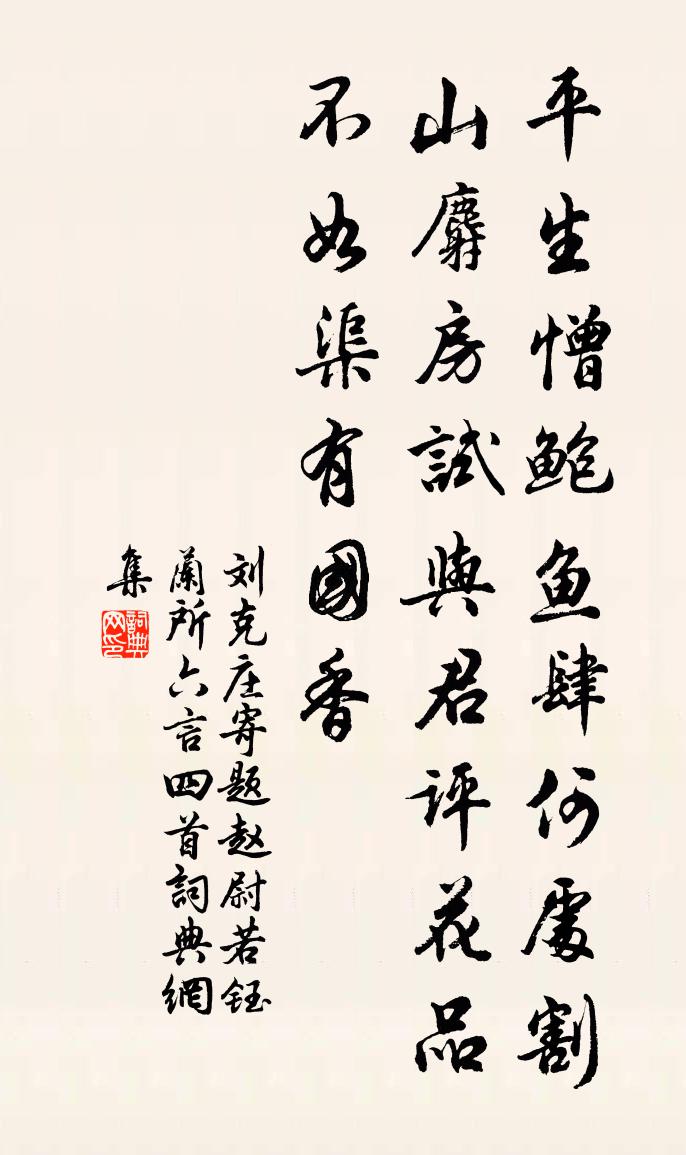 平生憎鲍鱼肆何處割
山麝房試與君评花品
不如渠有國香
刘克庄寄题赵尉若钰
蘭所六言四首詞典網
集
詞典网印